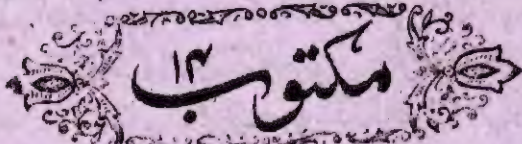 مکتوب ۱۴